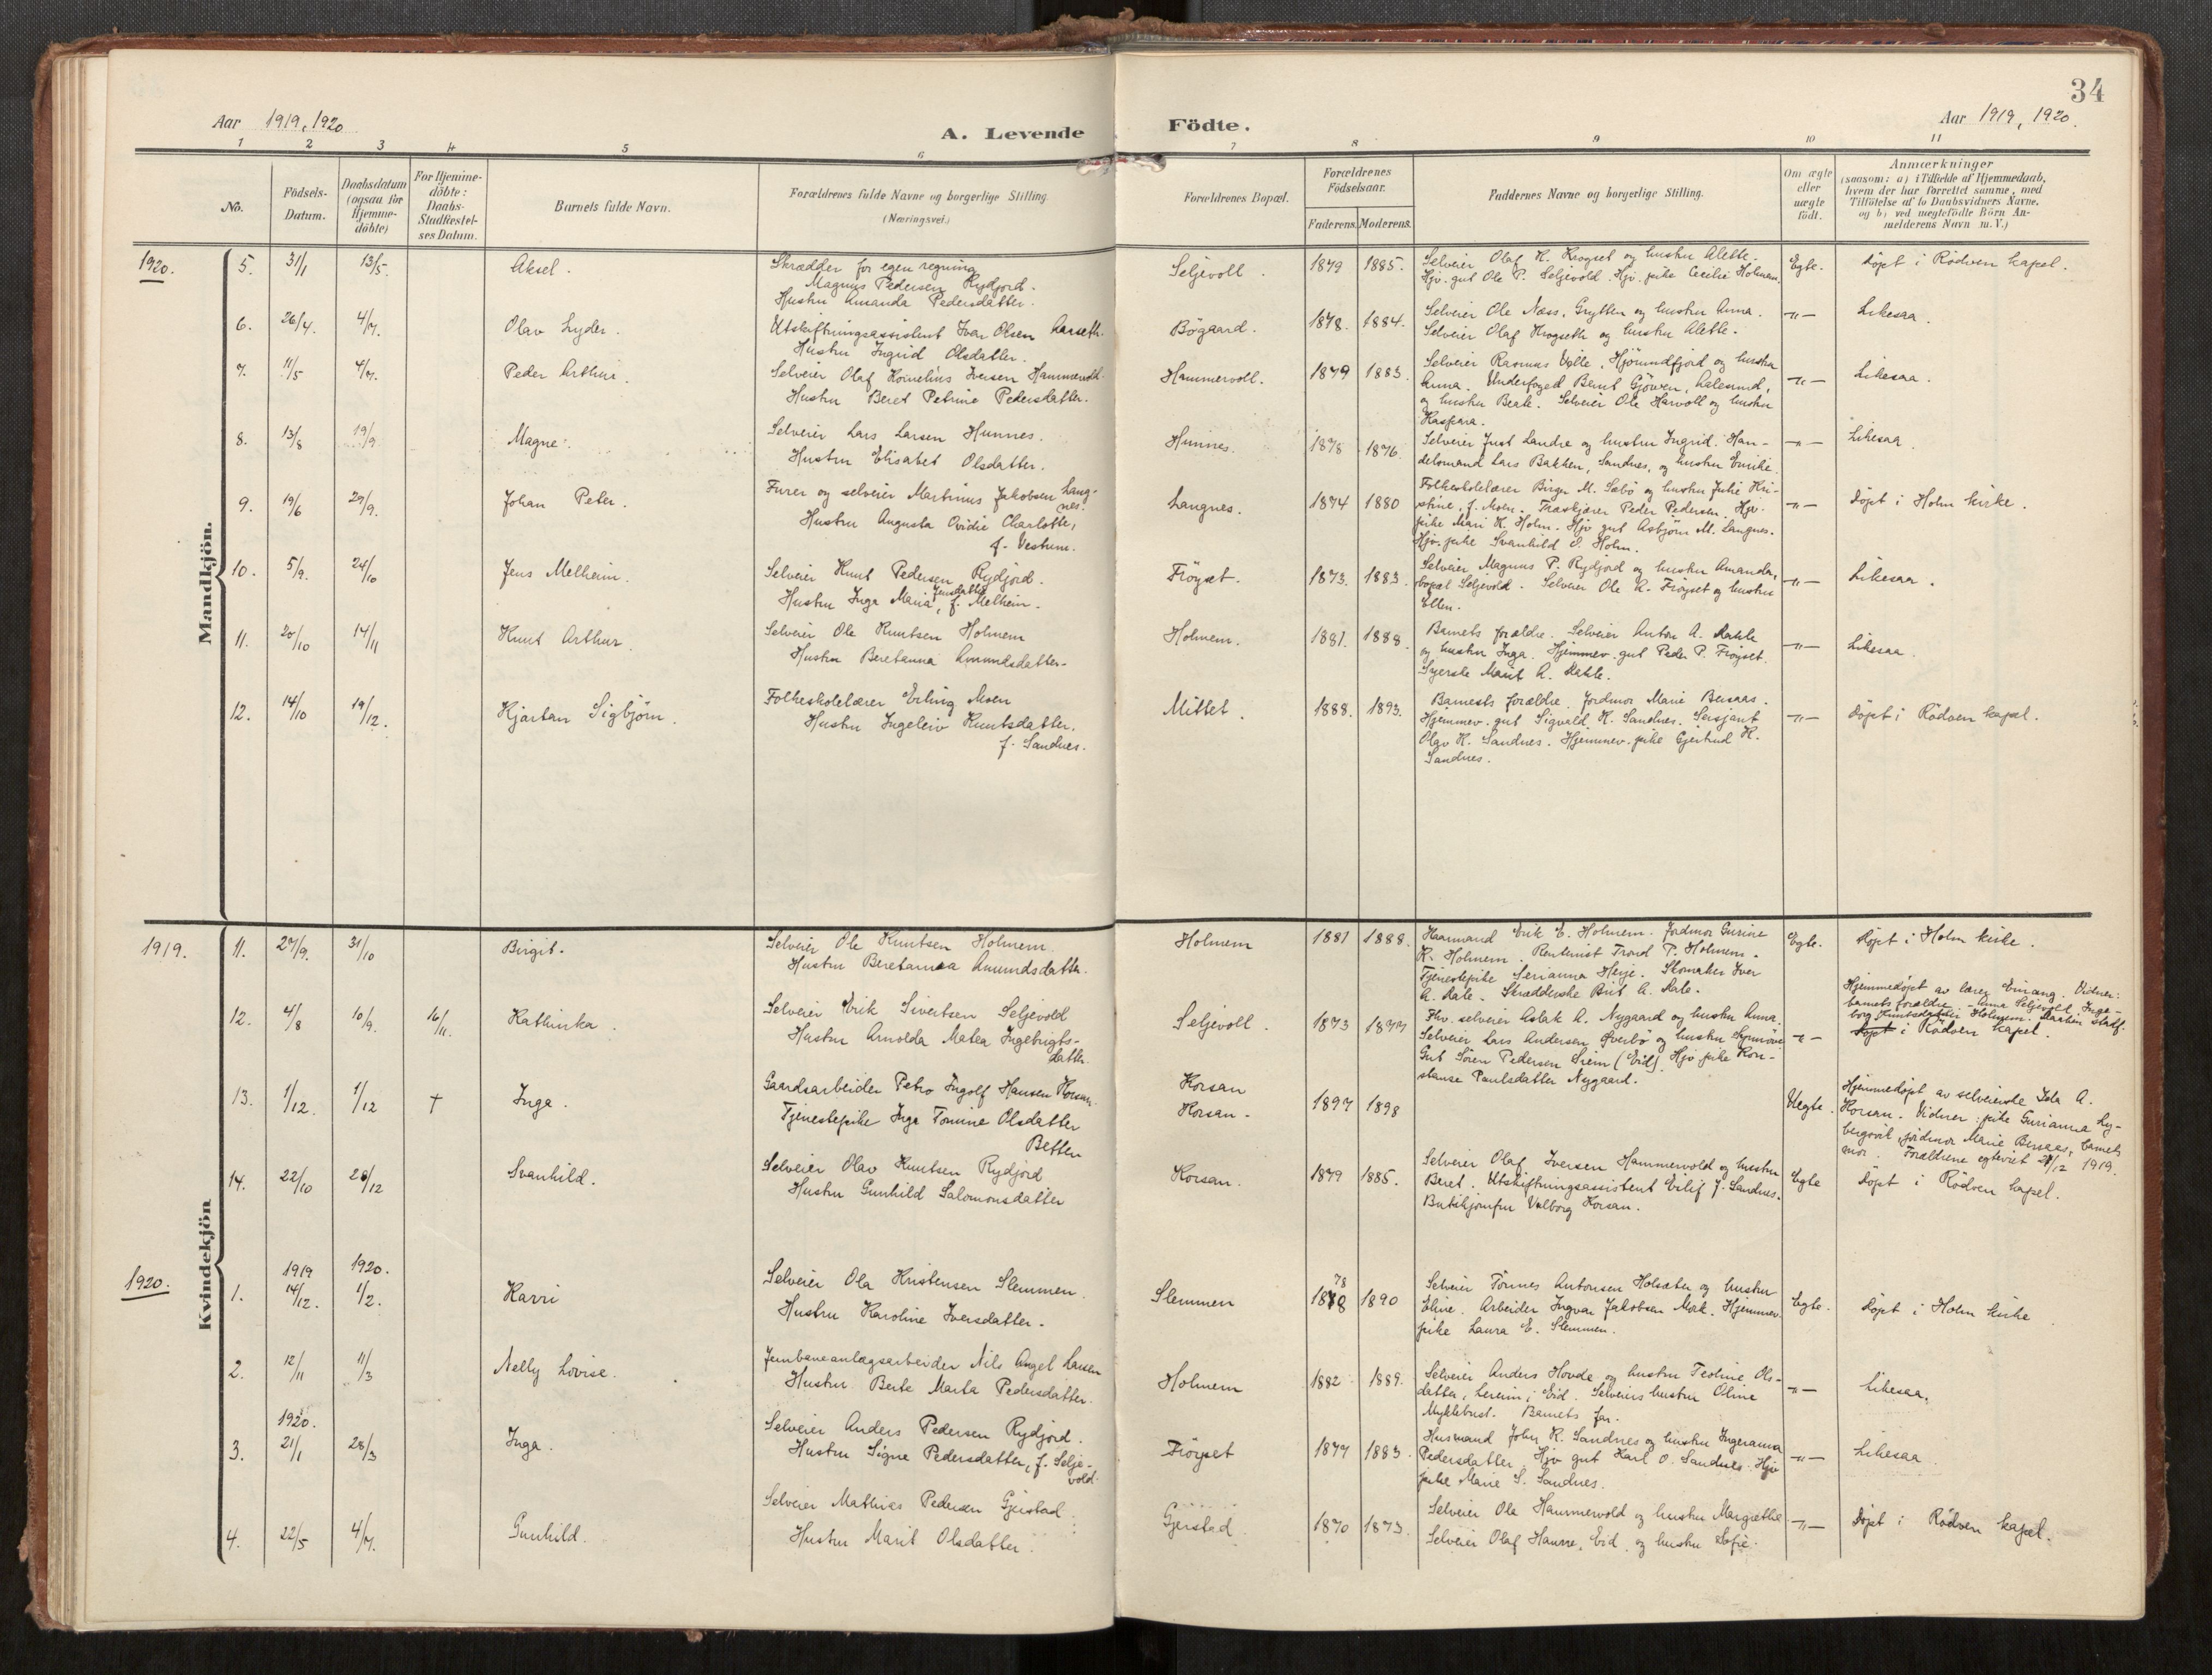 34
Aar 1919, 1920
A. Levende Födte.
Aar 1919, 1920.
1 2 3 4 5 6 7 8 9 10 11
No.
Födsels-
Datum.
Daabsdatum
(ogsaa for
Hjemme-
döbte)
For Hjemme-
döbte:
Daabs-
Stadfæstel-
ses Datum.
Barnets fulde Navn.
Forældrenes fulde Navne og borgerlige Stilling
(Næringsvei.)
Forældrenes Bopæl.
Forældrenes
Födselsaar.
Faderens. Moderens.
Faddernes Navne og borgerlige Stilling.
Om ægte
eller
uægte
födt.
Anmærkninger
(saasom: a) i Tilfælde af Hjemmedaab,
hvem der har forrettet samme, med
Tilföielse af to Daabsvidners Navne,
og b) ved uægtefödte Börn An-
melderens Navn m. V.)
Mandkjön.
1920.
5. 31/1 13/5. Aksel.
Skrædder for egen regning
Magnus Pedersen Rydjord.
Hustru Amanda Pedersdatter.
Seljevoll. 1879 1885.
Selveier Olaf K. Krogset og hustru Alette.
Hjv. gut Ole P. Seljevold. Hjv. pike Cecilie Holmem.
Egte. Döpt i Rödven kapel.
6. 26/4. 4/7. Olav Lyder.
Utskiftningsassistent Ivar Olsen Aarseth.
Hustru Ingrid Olsdatter.
Bögaard. 1878. 1884.
Selveier Ole Næss, Grytten og hustru Anna.
Selveier Olaf Krogseth og hustru Alette.
-"- Likesaa.
7. 11/5 4/7. Peder Arthur.
Selveier Olaf Kornelius Iversen Hammervold.
Hustru Beret Petrine Pedersdatter.
Hammervoll. 1879 1883.
Selveier Rasmus Viple, Hjörundfjord og hustru
Anna. Underfoged Bernt Gjöwen, Aalesund,
og hustru Beate. Selveier Ole Harvoll og hustru
Kaspara.
-"- Likesaa.
8. 13/8 19/9 Magne.
Selveier Lars Larsen Hunnes.
Hustru Elisabet Olsdatter.
Hunnes. 1878 1876.
Selveier Just Landre og hustru Ingrid. Han-
delsmand Lars Bakken, Sandnes, og hustru Enrike.
-"- Likesaa
9. 19/6 29/9. Johan Peter.
Furer og selveier Martinus Jakobsen Lang-
nes.
Hustru Augusta Ovidie Charlotte,
f. Vestrum.
Langnes. 1874 1880
Folkeskolelærer Birger M. Sæbö og hustru Julie Kri-
stine, f. Moen. Træskjærer Peder Pedersen. Hjv.
pike Mari K. Holm. Hjv gut Asbjörn M. Langnes.
Hjv. pike Svanhild E. Holm.
-"- Döpt i Holm kirke.
10. 5/9. 24/10 Jens Melheim.
Selveier Knut Pedersen Rydjord.
Hustru Inga Maria Jensdatter, f. Melheim.
Fröyset. 1873. 1883.
Selveier Magnus P. Rydjord og hustru Amanda,
bopæl Seljevold. Selveier Ole K. Fröyset og hustru
Ellen.
-"- Likesaa.
11. 20/10 14/11 Knut Arthur.
Selveier Ole Knutsen Holmem
Hustru Beretanna Amundsdatter.
Holmem. 1881. 1888.
Barnets forældre. Selveier Anton A. Dahle
og hustru Inga. Hjemmev. gut Peder P. Fröyset.
Syerske Marit A. Dahle.
-"- Likesaa.
12. 14/10 19/12. Kjartan Sigbjörn.
Folkeskolelærer Erling Moen
Hustru Ingeleiv Knutsdatter.
f. Sandnes.
Mittet. 1888. 1893.
Barnets forældre. Jordmor Marie Bersaas.
Hjemmev. gut Sigvald K. Sandnes. Sersjant
Olav K. Sandnes. Hjemmev. pike Gjertrud K.
Sandnes.
-"- Döpt i Rödven kapel.
Kvindekjön
1919.
11. 27/9. 31/10 Birgit.
Selveier Ole Knutsen Holmem.
Hustru Beretanna Amundsdatter.
Holmem 1881 1888.
Haarmand Erik E. Holmem. Jordmor Gurine
K. Holmem. Rentenist Trond P. Holmem.
Tjenestepike Serianna Heje. Skomaker Iver
A. Dale. Skrædderske Brit A. Dale.
Egte. Döpt i Holm kirke.
12. 4/8 10/9. 16/11. Kathinka.
Selveier Erik Sivertsen Seljevold
Hustru Arnolda Matea Ingebrigts-
datter.
Seljevoll. 1873 1877
Fhv. selveier Aslak A. Nygaard og hustru Anna.
Selveier Lars Andersen Överbö og hustru Synnöve
Gut Sören Pedersen Siem (Eid). Hjv pike Kon-
stanse Paulsdatter Nygaard.
-"-
Hjemmedöpt av lærer Einang. Vidner:
barnets forældre. - Anna Seljevold, Inge-
borg Knutsdatter Holmem. Daaben stadf.
Döpt i Rödven kapel.
13. 1/12. 1/12 † Inga.
Gaardsarbeider Petro Ingolf Hansen Korsan.
Tjenestepike Inga Tomine Olsdatter
Betten
Korsan
Korsan.
1897 1898
Uegte.
Hjemmedöpt av selveierske Ida A.
Korsan. Vidner: pike Gurianna Ly-
bergsvik, jordmor Marie Bersaas, barnets
mor. Forældrene egteviet 29/12 1919.
14. 22/10 26/12 Svanhild.
Selveier Olav Knutsen Rydjord
Hustru Gunhild Salomonsdatter
Korsan. 1879 1885.
Selveier Olaf Iversen Hammervold og hustru
Beret. Utskiftningsassistent Eilif J. Sandnes.
Butikjomfru Valborg Korsan.
Egte Döpt i Rödven kapel.
1920.
1919 1920.
1. 14/12. 1/2. Karri
Selveier Ola Kristensen Slemmen.
Hustru Karoline Iversdatter.
Slemmen 78 1878 1890
Selveier Tönnes Antonsen Holsæter og hustru
Eline. Arbeider Ingvar Jakobsen Mork. Hjemmev.
pike Laura E. Slemmen.
Egte. Döpt i Holm kirke.
2. 12/11 11/3 Nelly Lovise.
Jernbaneanlægsarbeider Nils Angel Larsen
Hustru Berte Marta Pedersdatter.
Holmem 1882 1889.
Selveier Anders Hovde og hustru Teoline Ols-
datter, Lereim i Eid. Selveiers hustru Oline
Myklebust. Barnets far.
-"- Likesaa.
1920.
3. 21/1 28/3 Inga.
Selveier Anders Pedersen Rydjord.
Hustru Signe Pedersdatter, f. Selje-
vold.
Fröyset 1877 1883.
Husmand John K. Sandnes og hustru Ingeranna
Pedersdatter. Hjv gut Karl O. Sandnes. Hjv
pike Marie S. Sandnes.
-"- Likesaa.
4. 22/5 4/7. Gunhild.
Selveier Mathias Pedersen Gjerstad
Hustru Marit Olsdatter.
Gjerstad 1870 1873.
Selveier Ole Hammervold og hustru Margrethe
Selveier Olaf Hamre, Eid, og hustru Sofie.
-"- Döpt i Rödven kapel.